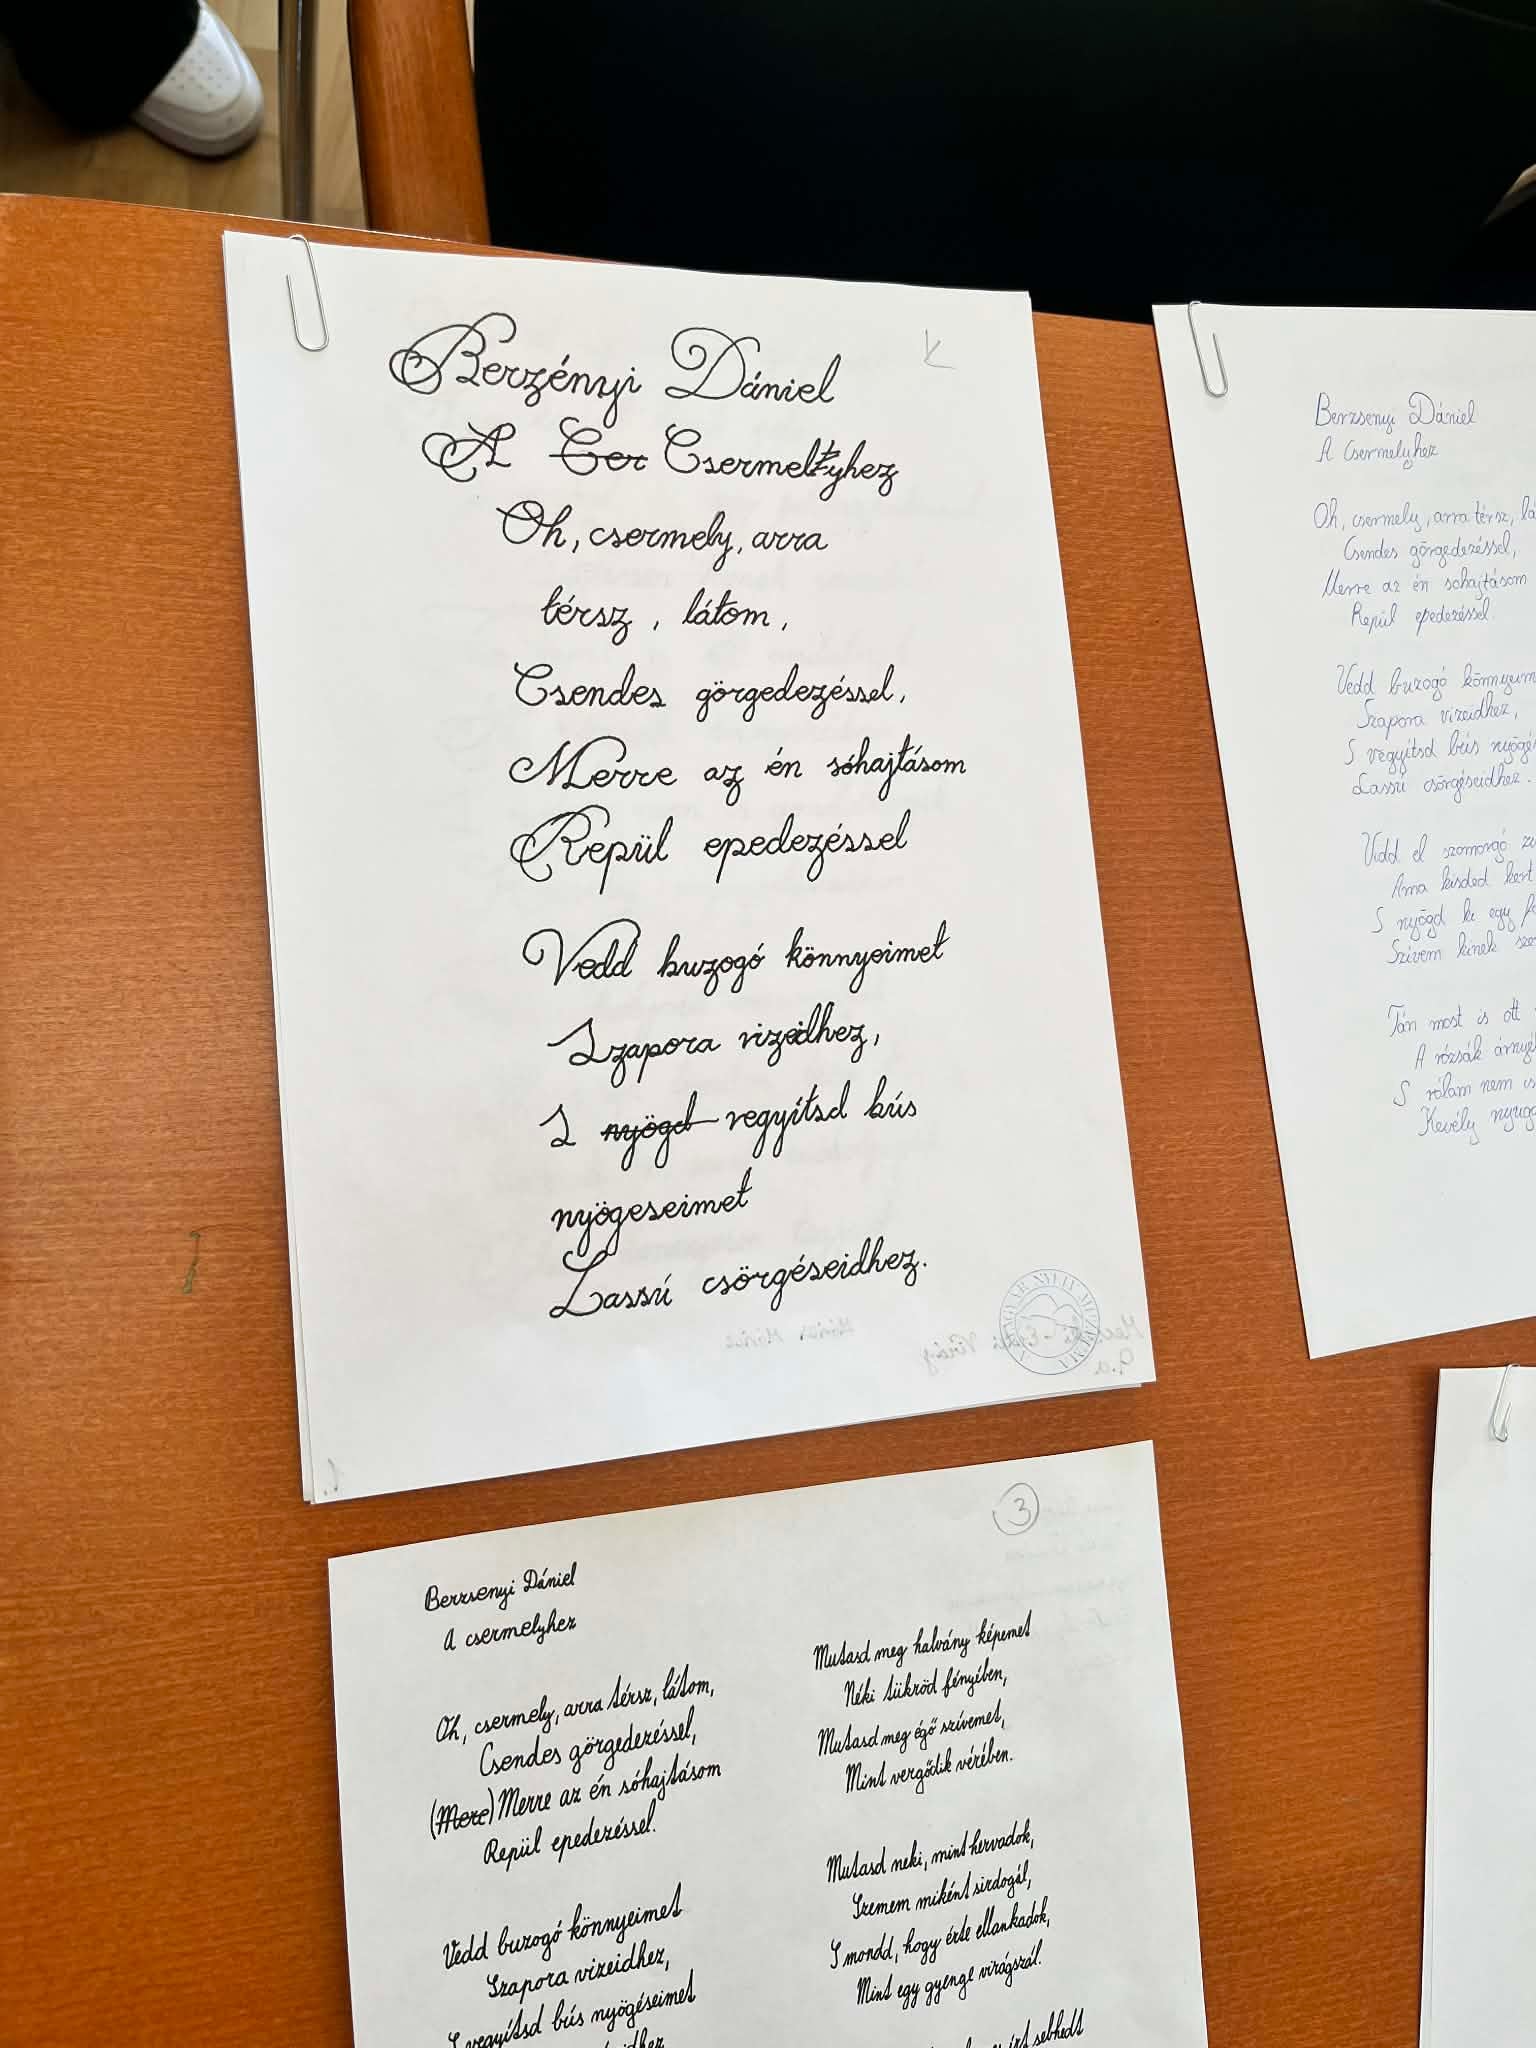 Berzényi Dániel
A Cser Csermelyhez
Oh, csermely, arra
térsz, látom,
Csendes görgedezéssel,
Merre az én sóhajtásom
Repül epedezéssel
Vedd buzogó könnyeimet
Szapora vizeidhez,
S nyögd vegyítsd bús
nyögeseimet
Lassú csörgéseidhez.
MAGYAR NYELV MÚZEUMA
1.
Berzsenyi Dániel
A Csermelyhez
Oh, csermely, arra térsz,
Csendes görgedezéssel,
Merre az én sohajtásom
Repül epedezéssel.
Vedd buzogó könnyeim
Szapora vizeidhez,
S vegyítsd bús
Lassú csörgéseidhez.
Vidd el szomorgó
Ama kisded kert
S nyögd ki egy
Szívem kinek
Tán most is ott
A rózsák
S rólam nem
Kevély
3
Berzsenyi Dániel
A csermelyhez
Oh, csermely, arra térsz, látom,
Csendes görgedezéssel,
(Mere) Merre az én sóhajtásom
Repül epedezéssel.
Vedd buzogó könnyeimet
Szapora vizeidhez,
S vegyítsd bús nyögéseimet
Mutasd meg halvány képemet
Néki tükröd fényében,
Mutasd meg égő szívemet,
Mint vergődik vérében.
Mutasd neki, mint hervadok,
Szemem miként sirdogál,
S mondd, hogy érte ellankadok,
Mint egy gyenge virágszál.
sebhedt